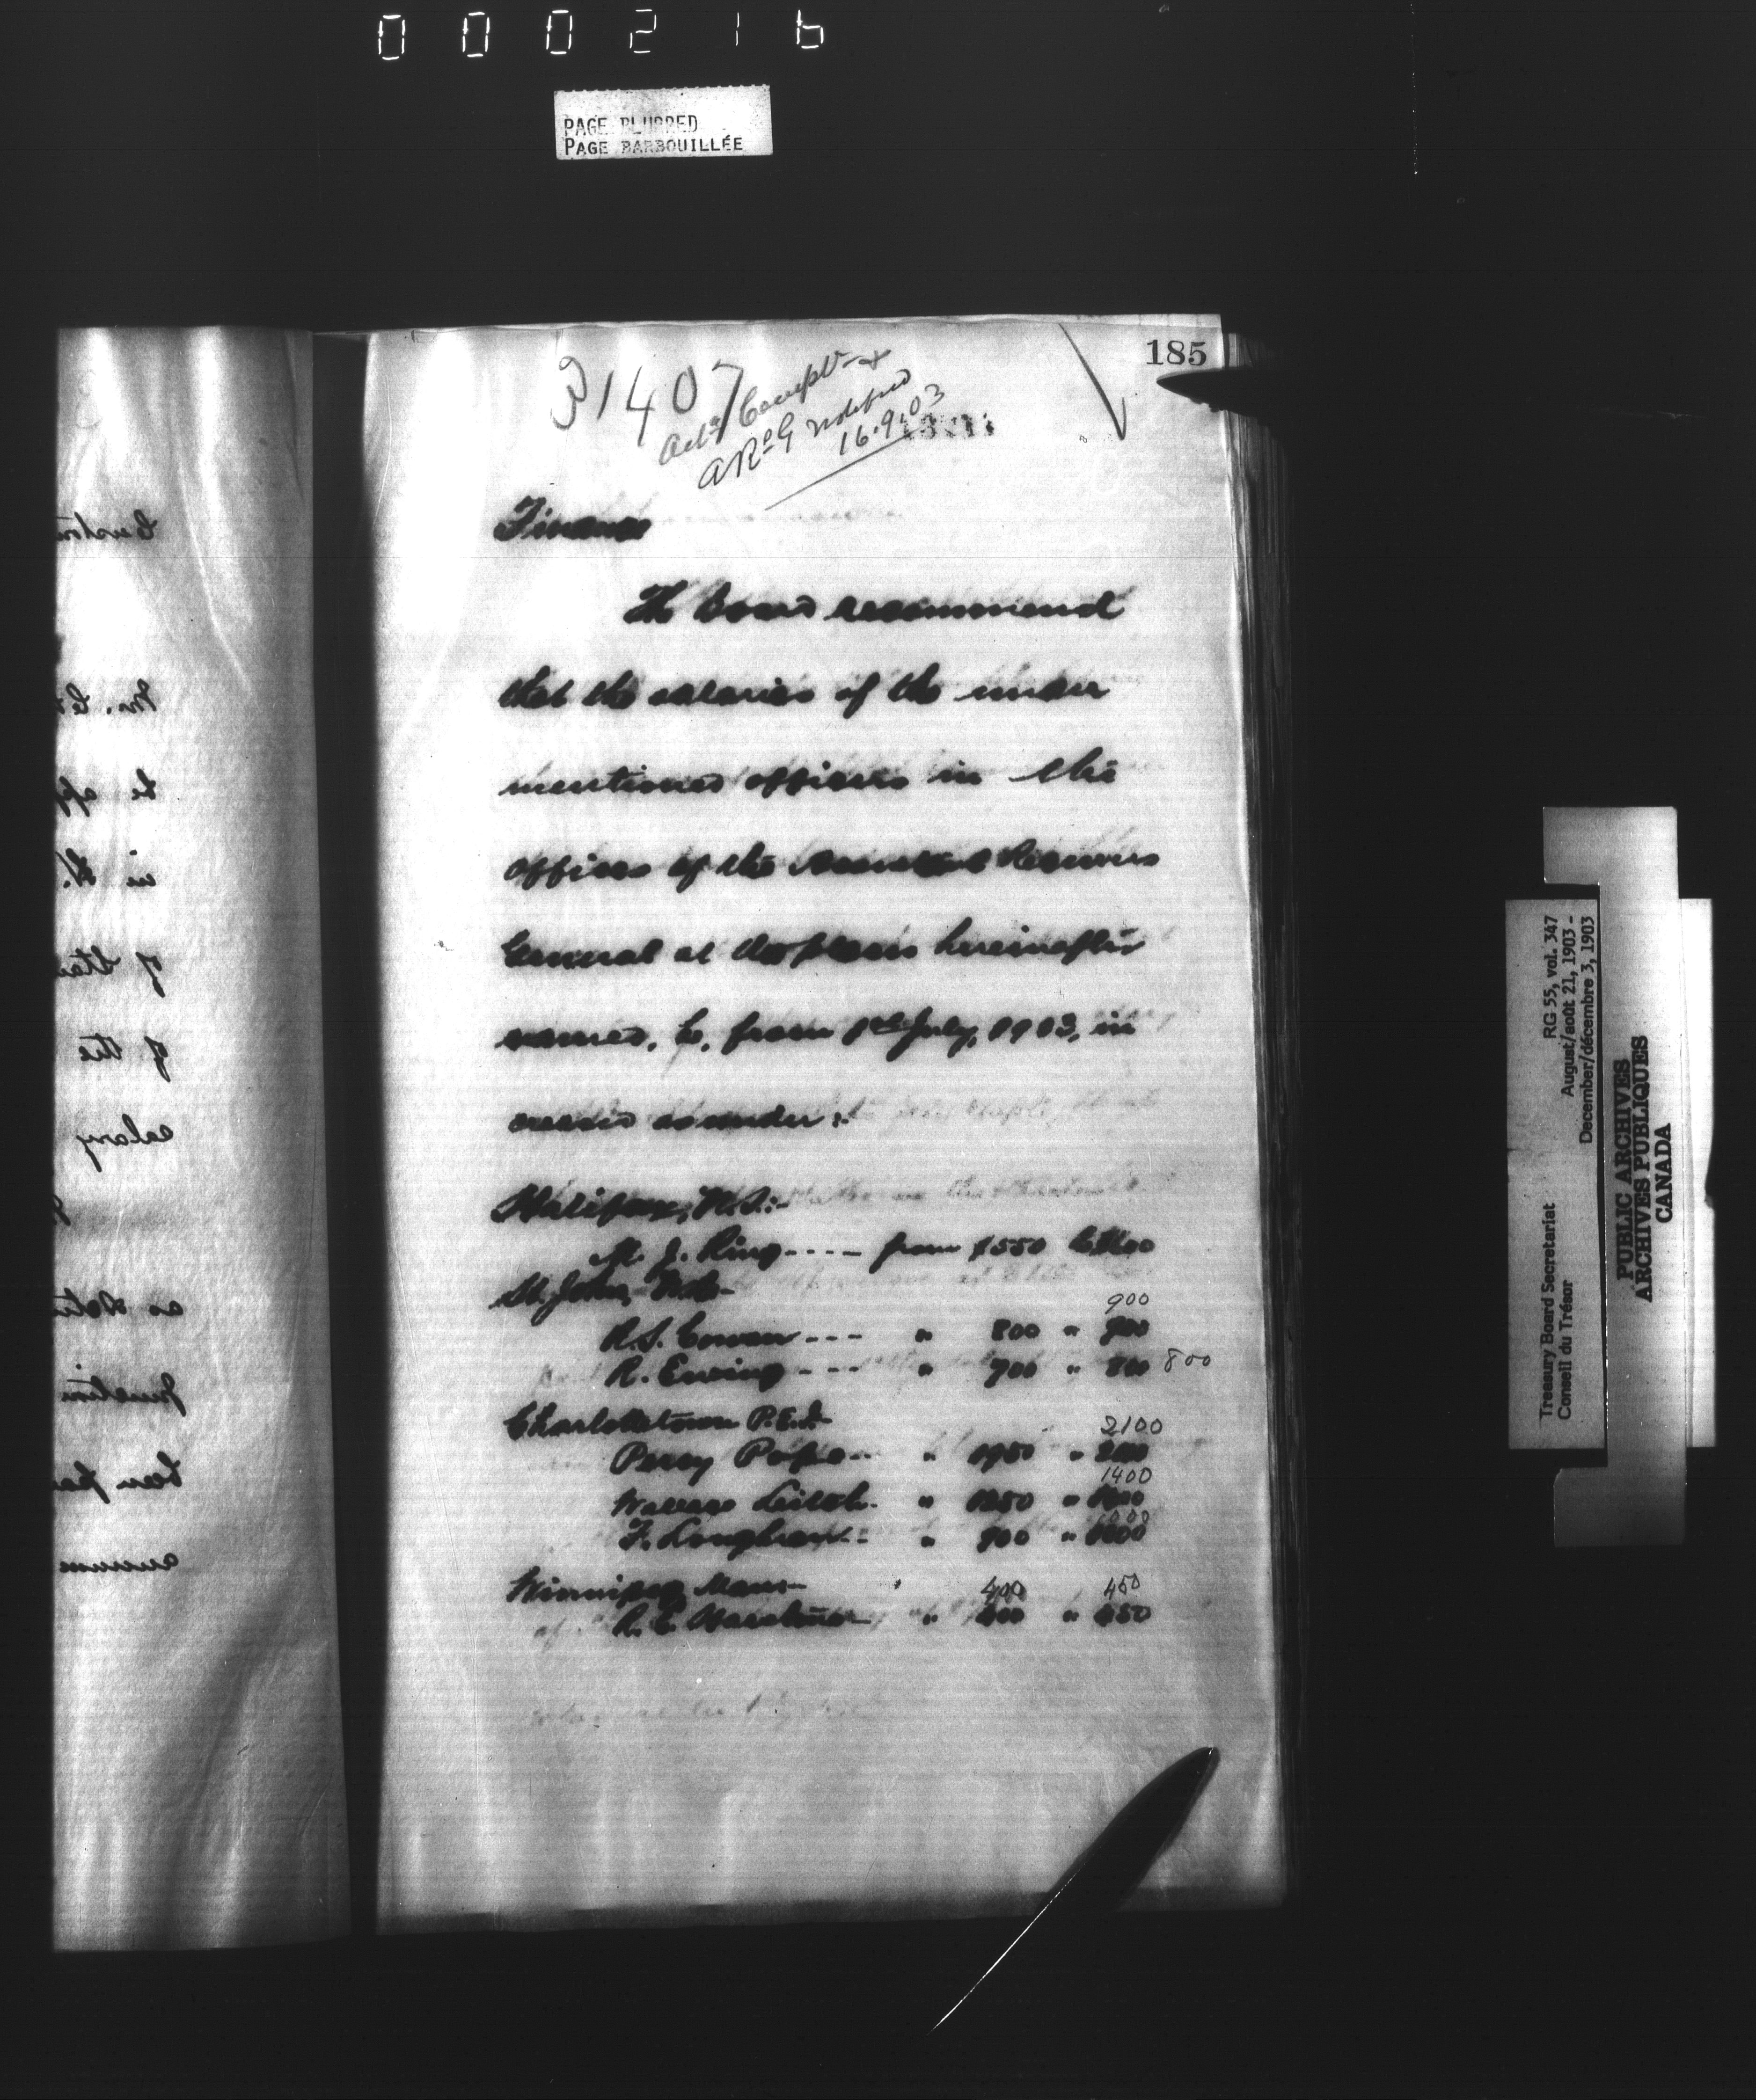 000216
PAGE BLURRED
PAGE BARBOUILLÉE
185
31407
Compt &
AR G notified
16.9.03
Finance
The Board recommend
that the salaries of the under
mentioned officers in the
offices of the Assistant Receivers
General at the places hereinafter
named, be, from 1st July, 1903, in
creased as under:-
Halifax, N.S.:-
M. J. King ---- from $550 to $600
St. John, N.B.-
900
R.S. Cowan --- " 800 " 900
R. Ewing --- " 700 " 800 800
Charlottetown P.E.I.-
2100
Percy Pope -- " 1950 " 2100
1400
Wallace Leitch - " 1250 " 1400
1000
F. Loughran -- " 900 " 1000
Winnipeg Man-
400 450
R. E. " 400 " 450
Custom
Mr.
be app
in
of
of the
salary
as
been
annum
Treasury Board Secretariat RG 55, vol. 347
Conseil du Trésor August/août 21, 1903 -
December/décembre 3, 1903
PUBLIC ARCHIVES
ARCHIVES PUBLIQUES
CANADA